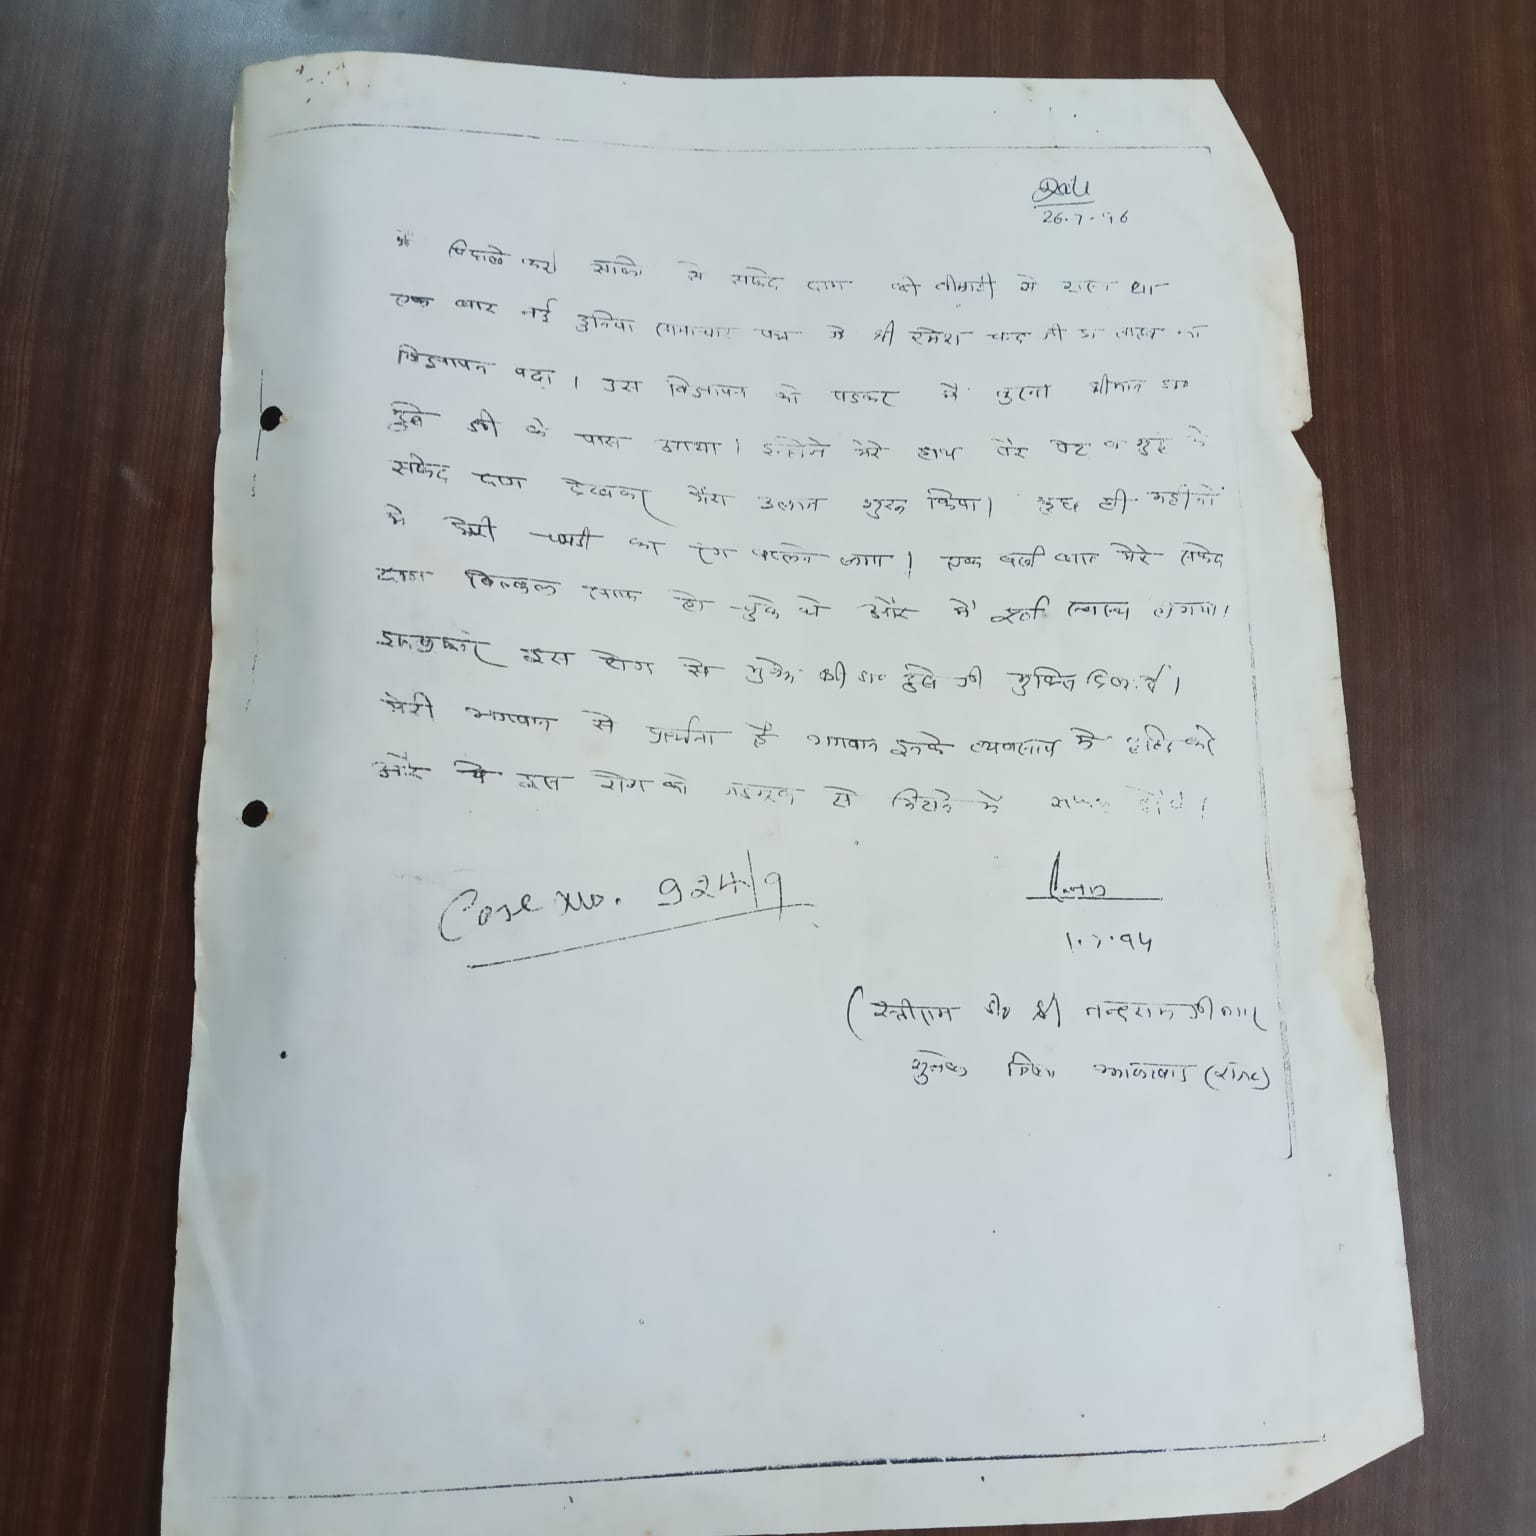 Date
26.7.96
मैं पिछले कई सालों से सफेद दाग की बीमारी से ग्रस्त था
एक बार नई दुनिया समाचार पत्र में श्री रमेश चन्द्र जी का
विज्ञापन पढ़ा । उस विज्ञापन को पडकर मैं तुरन्त श्रीमान डा०
दुबे जी के पास आया । इन्होंने मेरे हाथ पैर पेट व मुह के
सफेद दाग देखकर मेरा इलाज शुरू किया । कुछ ही महीनों
में मेरी चमडी का रंग बदलने लगा । एक बाद मेरे सफेद
दाग बिल्कुल साफ हो चुके थे और मैं स्वस्थ हो गया ।
इस रोग से मुझे श्री डा० दुबे जी मुक्ति दिलाई ।
मेरी भगवान से प्रार्थना है भगवान इनके व्यवसाय में वृद्धि करे
और ये इस रोग को जडमूल से मिटाने में सफल होवे ।
Case No. 924/9
1.7.94
( श्री नन्दराम जी
जिला झालावाड (राज०)